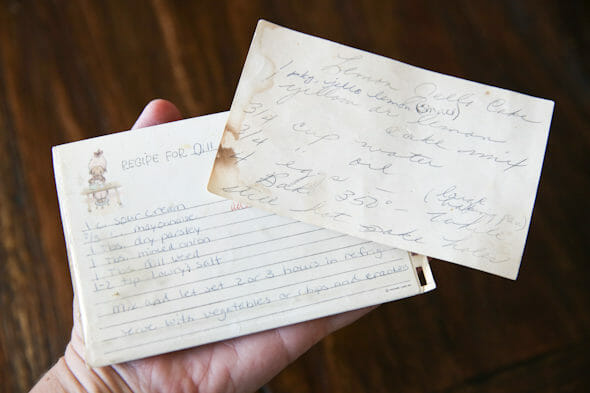 Lemon Jello Cake
1 pkg. jello lemon (small)
yellow or lemon
cake mix
3/4 cup water
3/4 " oil
4 eggs
Bake 350° -
(large
while
still hot poke holes
RECIPE FOR Dill
1 c. sour cream
mayonnaise
1 Tbs. dry parsley
1 Tbs. minced onion
1 Tbs. dill weed
1-2 tsp Lawry's salt
Mix and let set 2 or 3 hours in refrig
serve with vegetables or chips and crackers